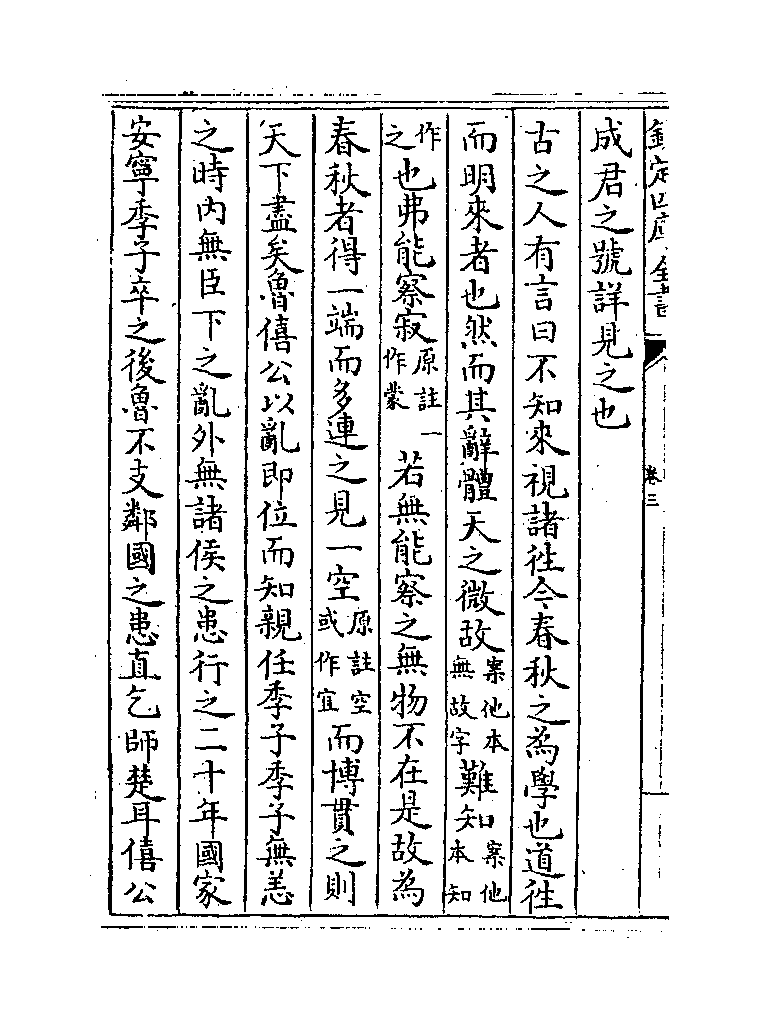 欽定四庫全書
卷三
成君之號詳見之也
古之人有言曰不知來視諸徃今春秋之為學也道徃
而明來者也然而其辭體天之微故案他本無故字難知案他本知
作之也弗能察寂原註一作蒙若無能察之無物不在是故為
春秋者得一端而多連之見一空原註空或作宜而博貫之則
天下盡矣魯僖公以亂即位而知親任季子季子無恙
之時內無臣下之亂外無諸侯之患行之二十年國家
安寧季子卒之後魯不支鄰國之患直乞師楚耳僖公